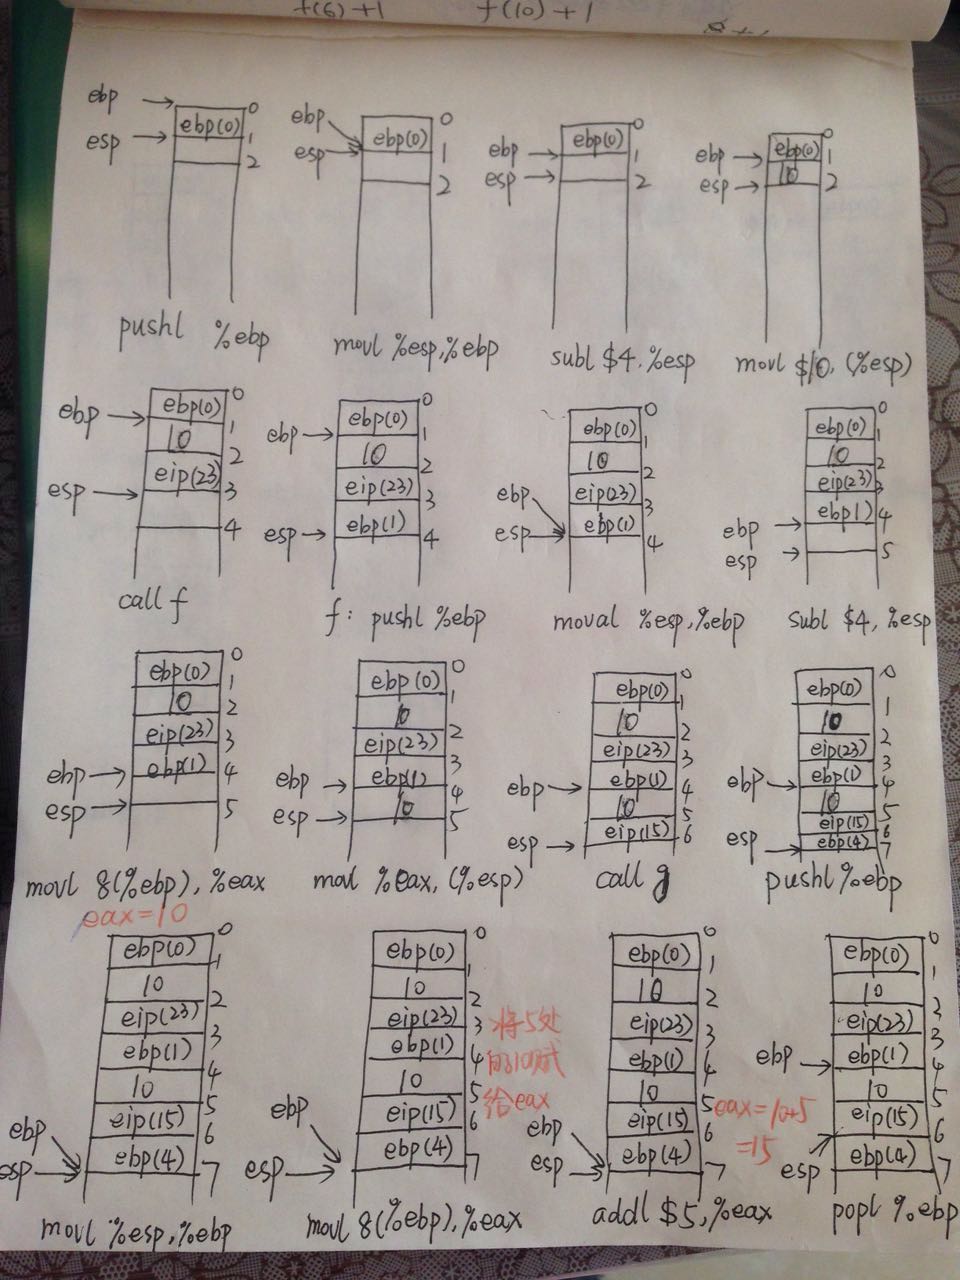 f(6)+1 f(10)+1
ebp
esp
ebp(0)
0
1
2
pushl %ebp
ebp
esp
ebp(0)
0
1
2
movl %esp,%ebp
ebp
esp
ebp(0)
0
1
2
subl $4,%esp
ebp
esp
ebp(0)
10
0
1
2
movl $10,(%esp)
ebp
esp
ebp(0)
10
eip(23)
0
1
2
3
4
call f
ebp
esp
ebp(0)
10
eip(23)
ebp(1)
0
1
2
3
4
f: pushl %ebp
ebp
esp
ebp(0)
10
eip(23)
ebp(1)
0
1
2
3
4
moval %esp,%ebp
ebp
esp
ebp(0)
10
eip(23)
ebp1)
0
1
2
3
4
5
subl $4,%esp
ebp
esp
ebp(0)
10
eip(23)
ebp(1)
0
1
2
3
4
5
movl 8(%ebp),%eax
eax=10
ebp
esp
ebp(0)
10
eip(23)
ebp(1)
10
0
1
2
3
4
5
movl %eax,(%esp)
ebp
esp
ebp(0)
10
eip(23)
ebp(1)
10
eip(15)
0
1
2
3
4
5
6
call g
ebp
esp
ebp(0)
10
eip(23)
ebp(1)
10
eip(15)
ebp(4)
0
1
2
3
4
5
6
7
pushl %ebp
ebp
esp
ebp(0)
10
eip(23)
ebp(1)
10
eip(15)
ebp(4)
0
1
2
3
4
5
6
7
movl %esp,%ebp
ebp
esp
ebp(0)
10
eip(23)
ebp(1)
10
eip(15)
ebp(4)
0
1
2
3
4
5
6
7
将5处
的10赋
给eax
movl 8(%ebp),%eax
ebp
esp
ebp(0)
10
eip(23)
ebp(1)
10
eip(15)
ebp(4)
0
1
2
3
4
5
6
7
eax=10+5
=15
addl $5,%eax
ebp
esp
ebp(0)
10
eip(23)
ebp(1)
10
eip(15)
ebp(4)
0
1
2
3
4
5
6
7
popl %ebp